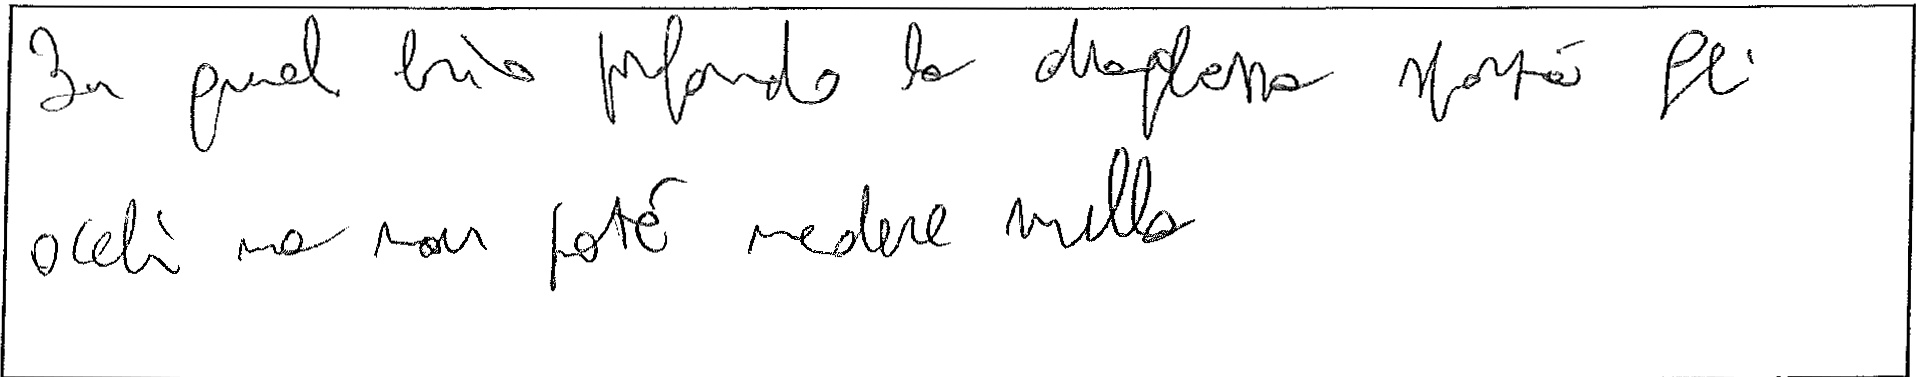 In quel buio profondo la dragessa spostò gli
occhi ma non poté vedere nulla